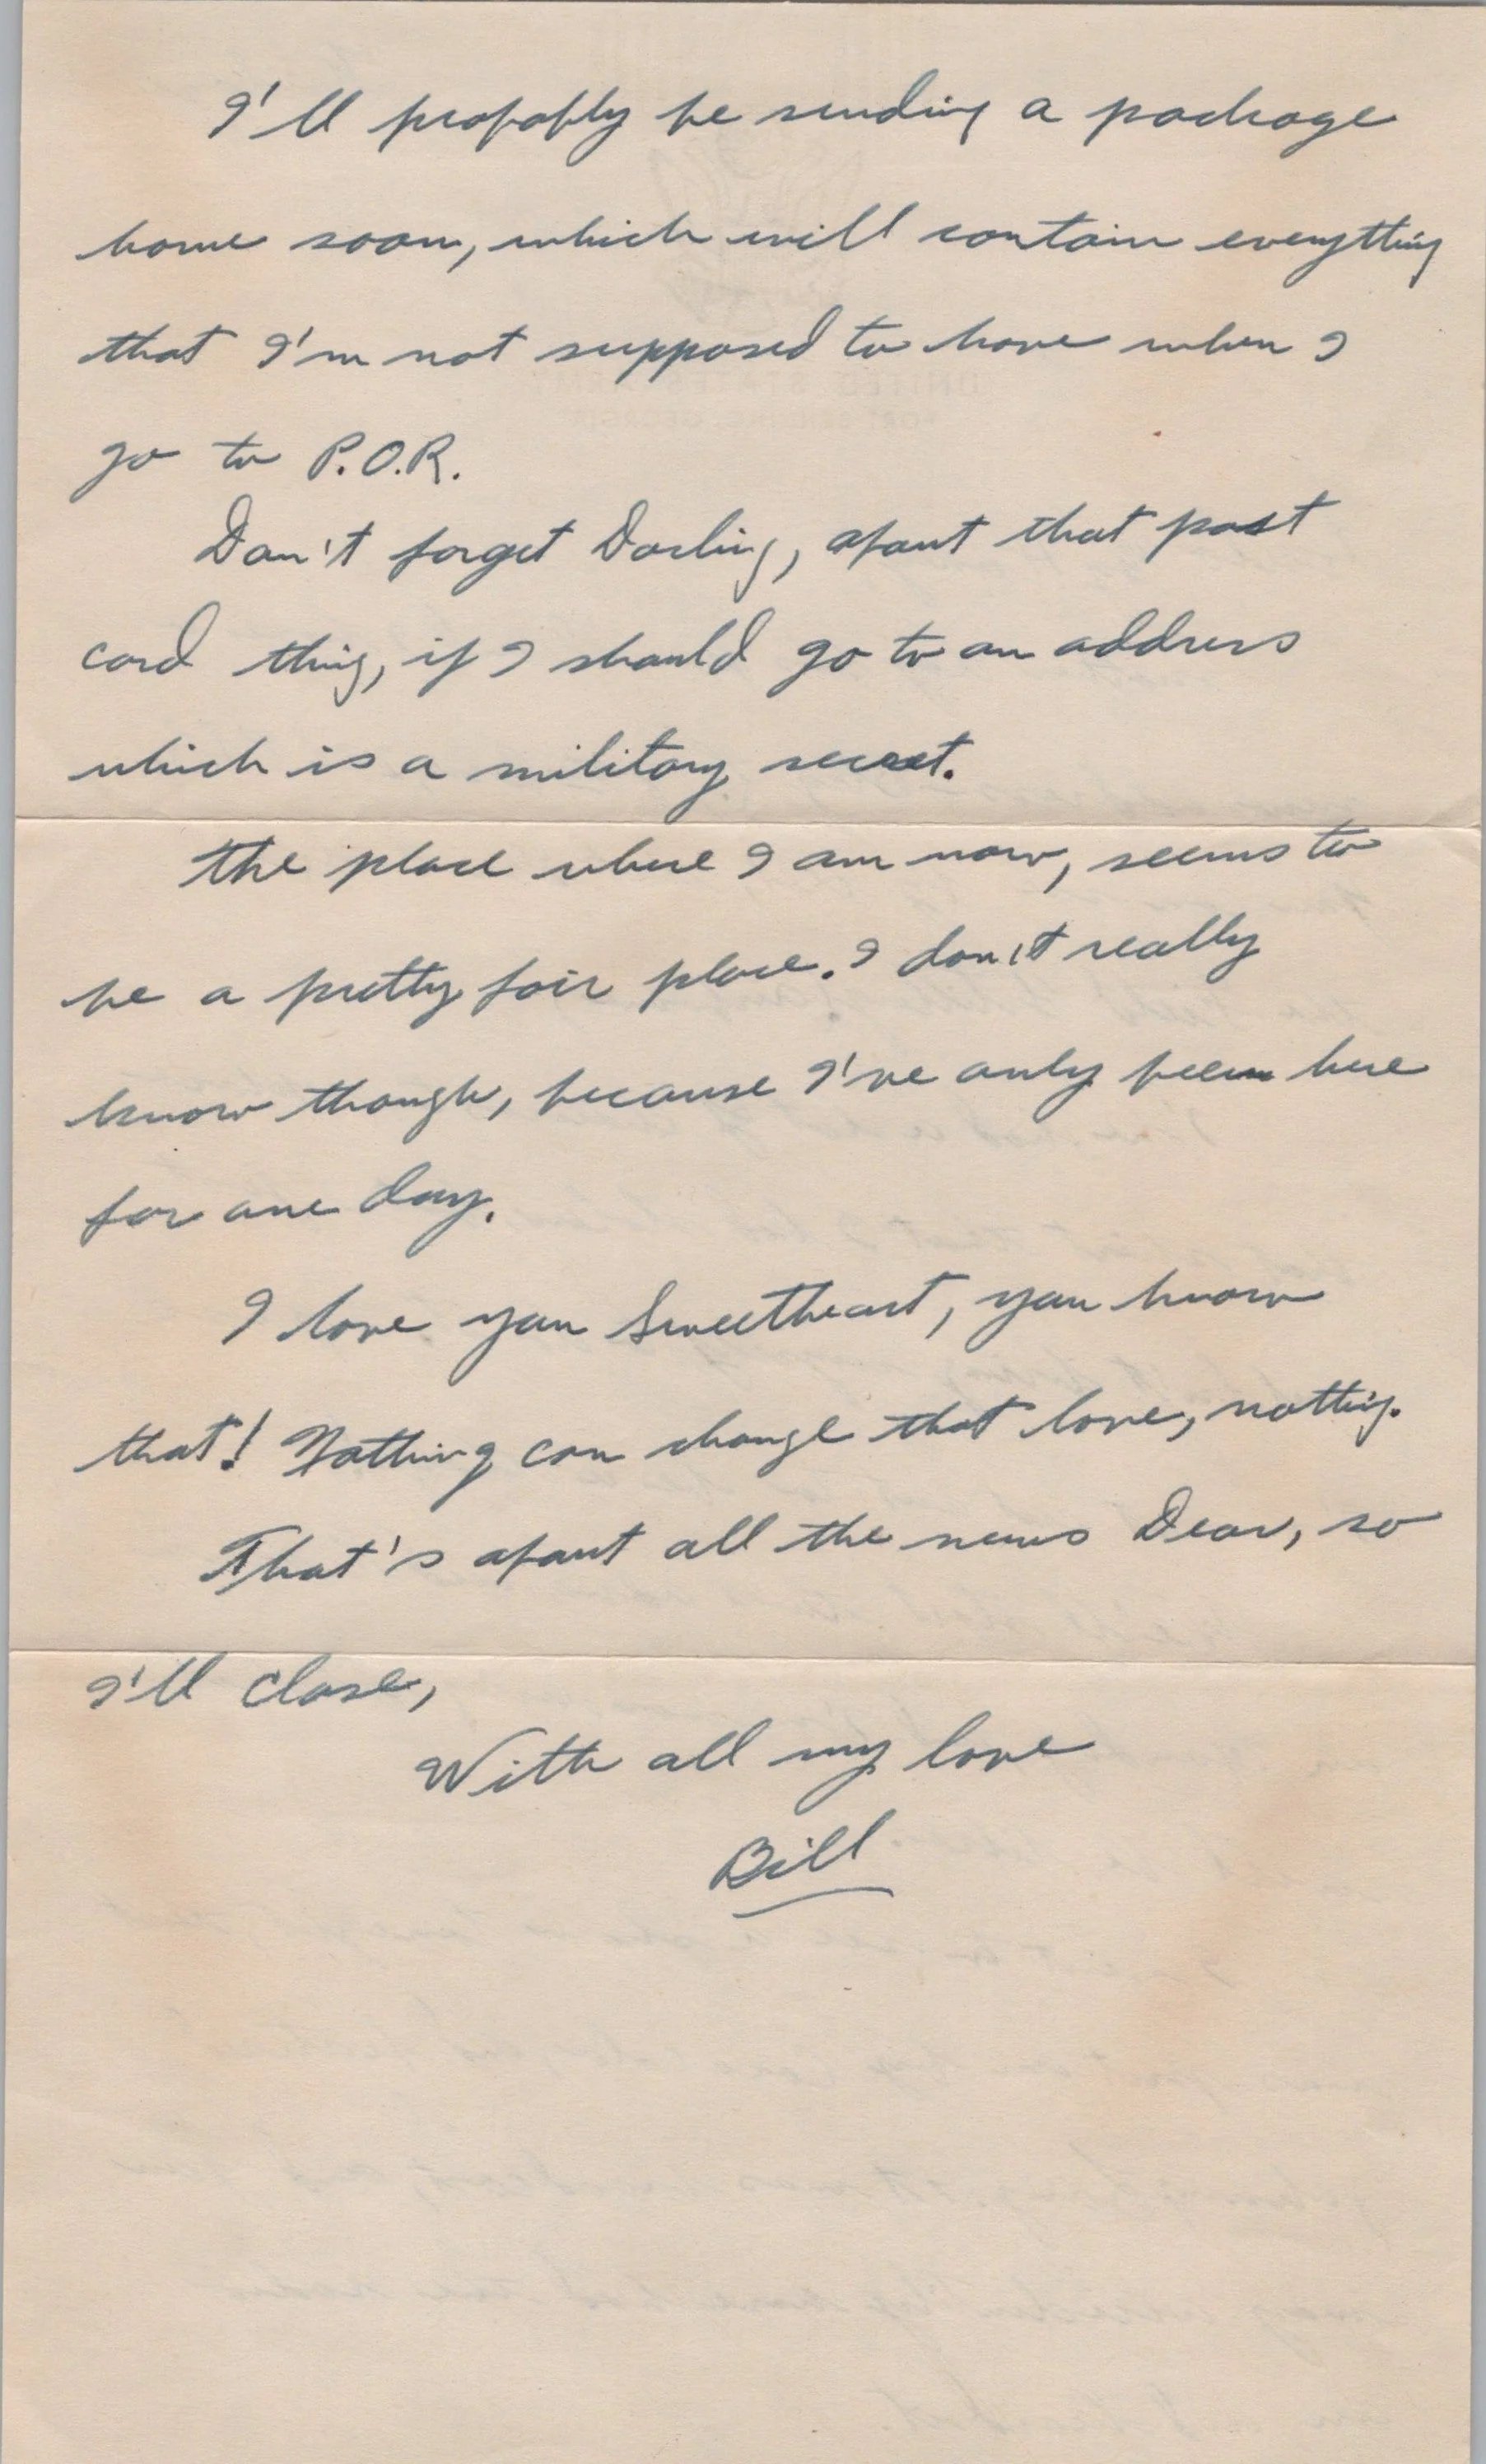 I'll probably be sending a package
home soon, which will contain everything
that I'm not supposed to have when I
go to P.O.R.
Don't forget Darling, about that post
card thing, if I should go to an address
which is a military secret.
The place where I am now, seems to
be a pretty fair place. I don't really
know though, because I've only been here
for one day.
I love you Sweetheart, you know
that! Nothing can change that love, nothing.
That's about all the news Dear, so
I'll close,
With all my love
Bill